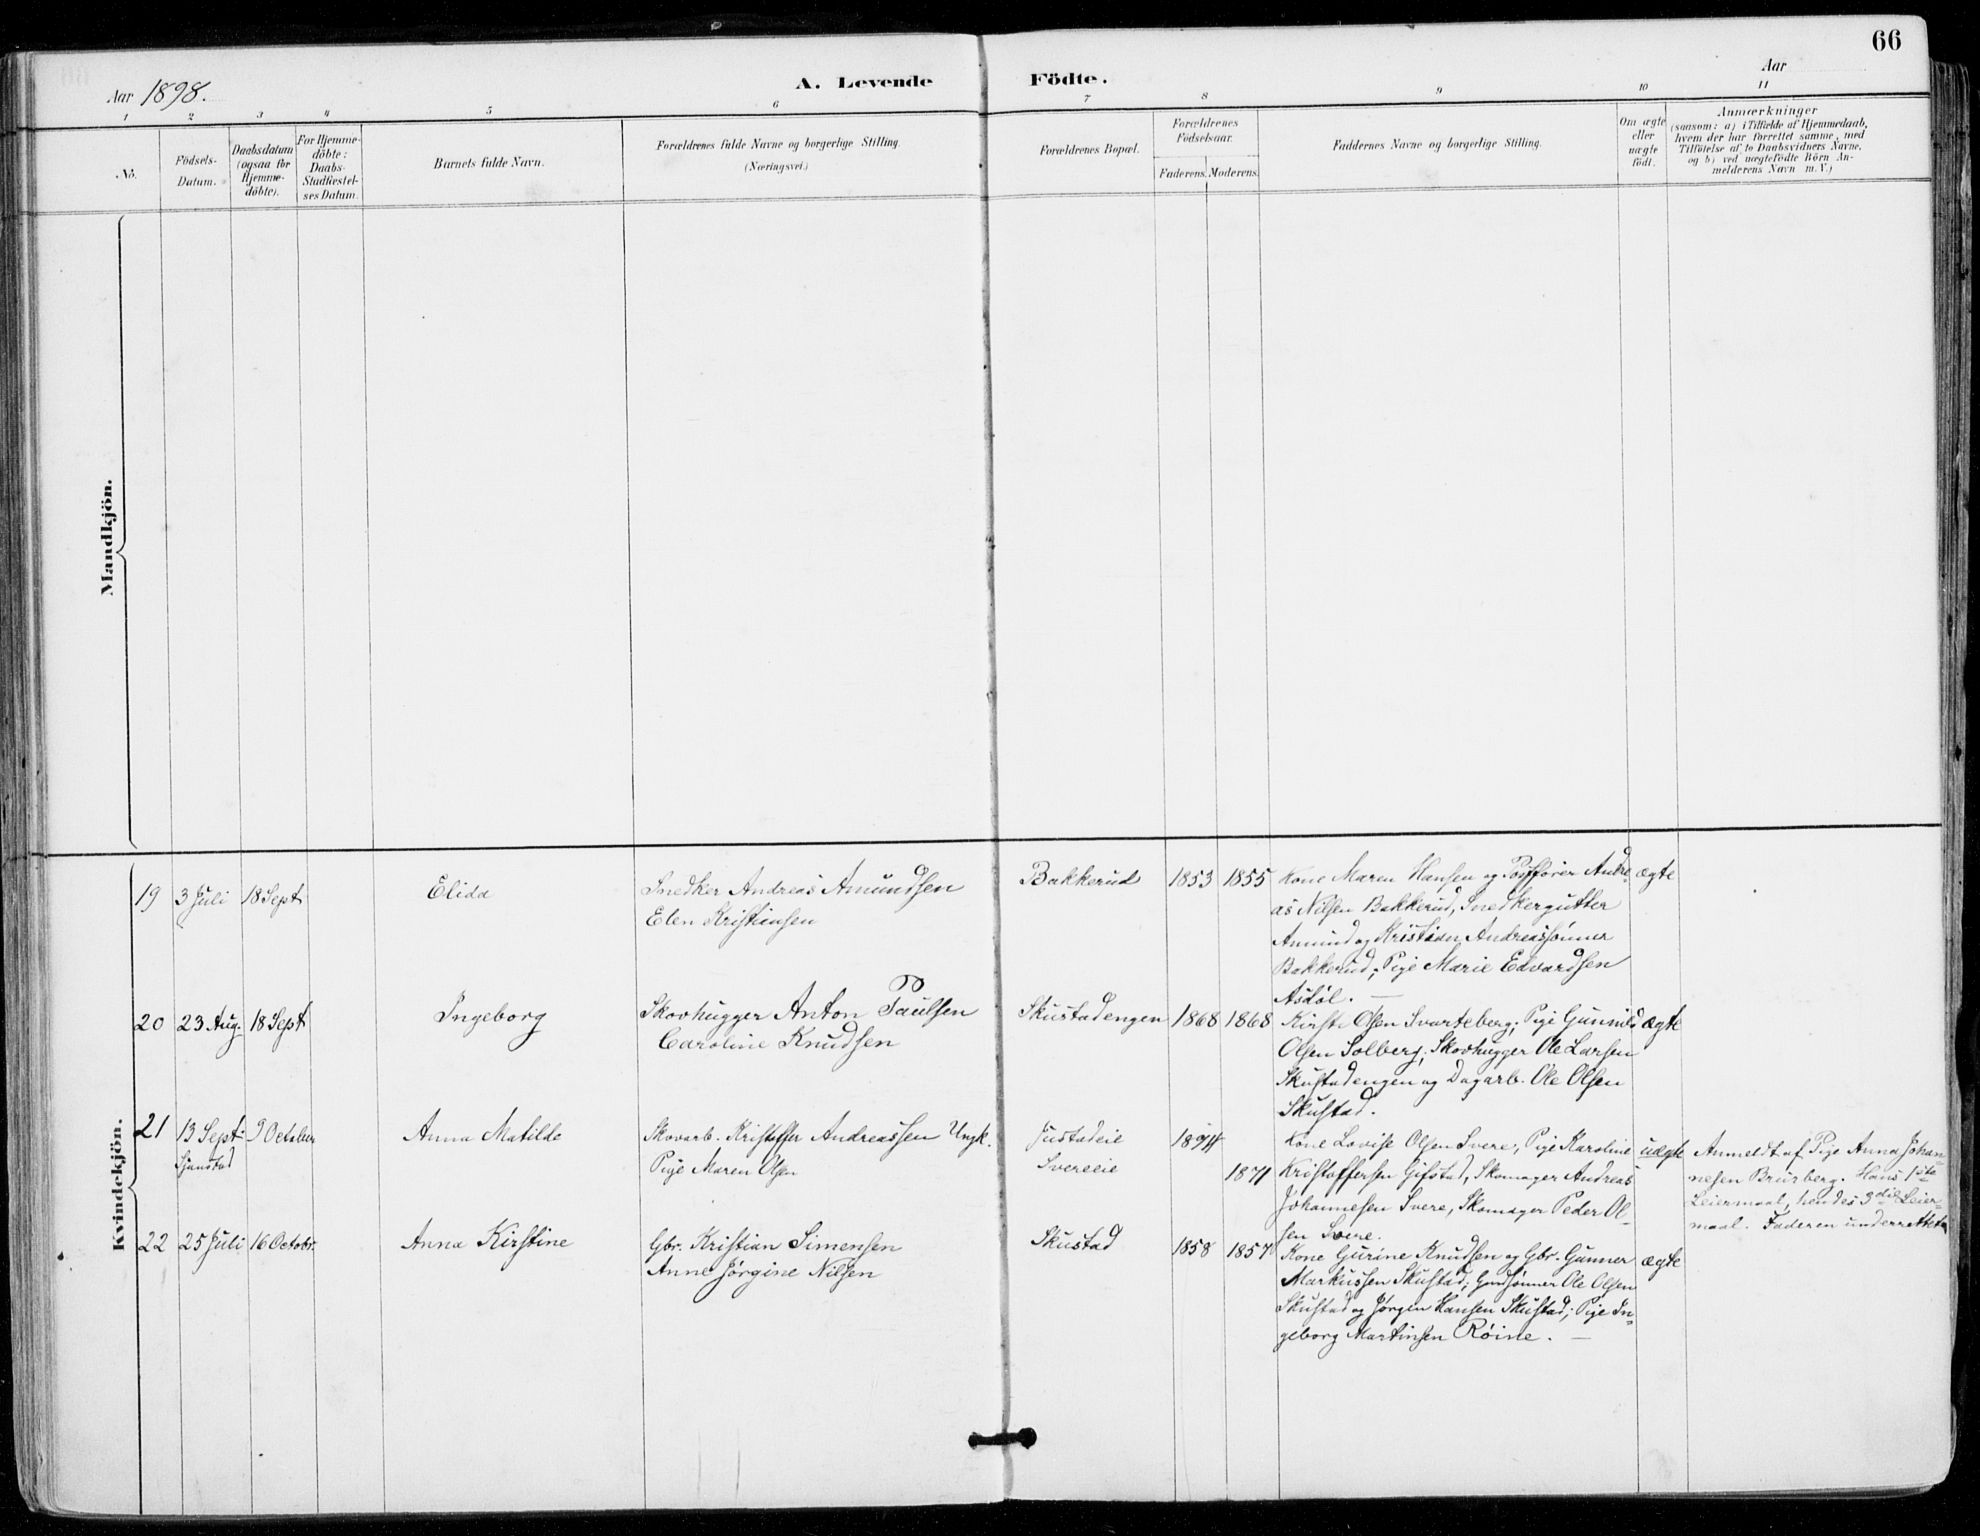 66
Aar 1898.
A. Levende Födte.
Aar
1 2 3 4 5 6 7 8 9 10 11
No.
Födsels-
Datum.
Daabsdatum
(ogsaa for
Hjemme-
döbte).
For Hjemme-
döbte:
Daabs-
Stadfæstel-
ses Datum.
Barnets fulde Navn.
Forældrenes fulde Navne og borgerlige Stilling.
(Næringsvei.)
Forældrenes Bopæl.
Forældrenes
Födselsaar.
Faderens. Moderens.
Faddernes Navne og borgerlige Stilling.
Om ægte
eller
uægte
født.
Anmærkninger
(saasom: a) i Tilfælde af Hjemmedaab,
hvem der har forrettet samme, med
Tilføielse af to Daabsvidners Navne,
og b) ved uægtefødte Börn An-
melderens Navn m.V.)
Mandkjön.
Kvindekjön.
19 3 Juli 18 Sept Elida
Snedker Andreas Amundsen
Elen Kristiansen
Bakkerud 1853 1855
Kone Maren Hansen og Andre-
as Nilsen Bakkerud, Snedkergutter
Amund og Kristian Andreassønner
Bakkerud; Pige Marie Edvardsen
Asdøl. —
ægte
20 23 Aug. 18 Sept Ingeborg
Skovhugger Anton Paulsen
Caroline Knudsen
Skustadengen 1868 1868
Kirsti Olsen Svarteberg; Pige Gunnild
Olsen Solberg; Skovhugger Ole Larsen
Skustadengen og Dagarb. Ole Olsen
Skustad.
ægte
21 13 Sept. 9 October Anna Matilde
Sjanstad
Skovarb. Kristoffer Andreassen Ungk.
Pige Maren Olsen
Justadeie
Svereeie
1874
1871
Kone Lovise Olsen Svere, Pige Karoline
Kristoffersen Gifstad, Skomager Andreas
Johannesen Svere, Skomager Peder Ol-
sen Svere.
uægte
Anmeldt af Pige Anna Johan-
nesen Brurberg. Hans 1ste
Leiermaal, hendes 3die Leier-
maal. Faderen underrettet
22 25 Juli 16 Octobr. Anna Kirstine
Gbr. Kristian Simensen
Anne Jørgine Nilsen
Skustad 1858 1857
Kone Gurine Knudsen og Gbr. Gunner
Markussen Skustad; Grdsønner Ole Olsen
Skustad og Jørgen Hansen Skustad; Pige In-
geborg Martinsen Røine. —
ægte